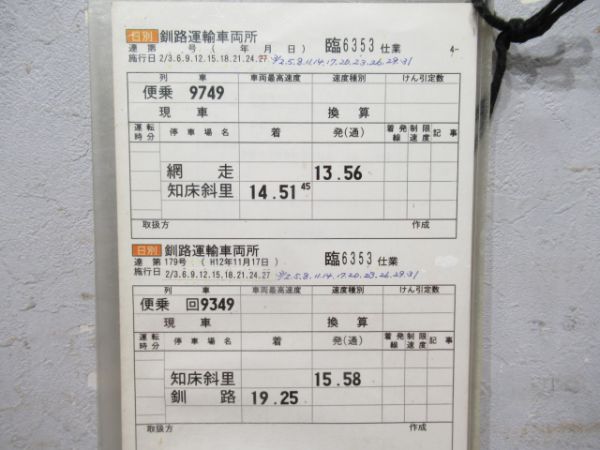 日別 釧路運輸車両所 臨6353 仕業 4-
達 第 号 ( 年 月 日)
施行日 2/3.6.9.12.15.18.21.24.27 3/2.5.8.11.14.17.20.23.26.29.31
列 車 車両最高速度 速度種別 けん引定数
便乗 9749
現 車 換 算
運転時分 停車場名 着 発(通) 着発線 制限速度 記事
網 走 13.56
知床斜里 14.51 45
取扱方 作成
日別 釧路運輸車両所 臨6353 仕業
達 第 179号 ( H12年11月17日 )
施行日 2/3.6.9.12.15.18.21.24.27 3/2.5.8.11.14.17.20.23.26.29.31
列 車 車両最高速度 速度種別 けん引定数
便乗 回9349
現 車 換 算
運転時分 停車場名 着 発(通) 着発線 制限速度 記事
知床斜里 15.58
釧 路 19.25
取扱方 作成